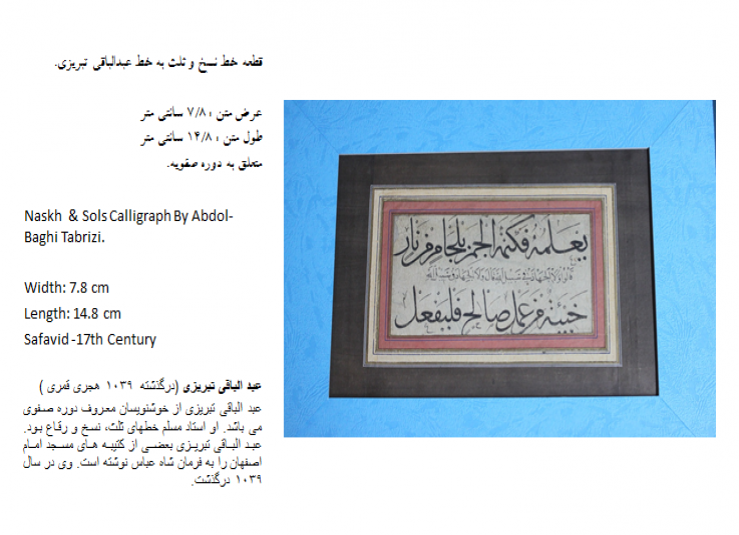 قطعه خط نسخ و ثلث به خط عبدالباقی تبریزی.
عرض متن : ۷/۸ سانتی متر
طول متن : ۱۴/۸ سانتی متر
متعلق به دوره صفویه.
Naskh & Sols Calligraph By Abdol-
Baghi Tabrizi.
Width: 7.8 cm
Length: 14.8 cm
Safavid -17th Century
عبد الباقی تبریزی (درگذشته ۱۰۳۹ هجری قمری )
عبد الباقی تبریزی از خوشنویسان معروف دوره صفوی
می باشد. او استاد مسلم خطهای ثلث، نسخ و رقاع بود.
عبد الباقی تبریزی بعضی از کتیبه های مسجد امام
اصفهان را به فرمان شاه عباس نوشته است. وی در سال
۱۰۳۹ درگذشت.
يعلمه فكتمه الجم بلجام من نار
خبيئة من عمل صالح فليفعل